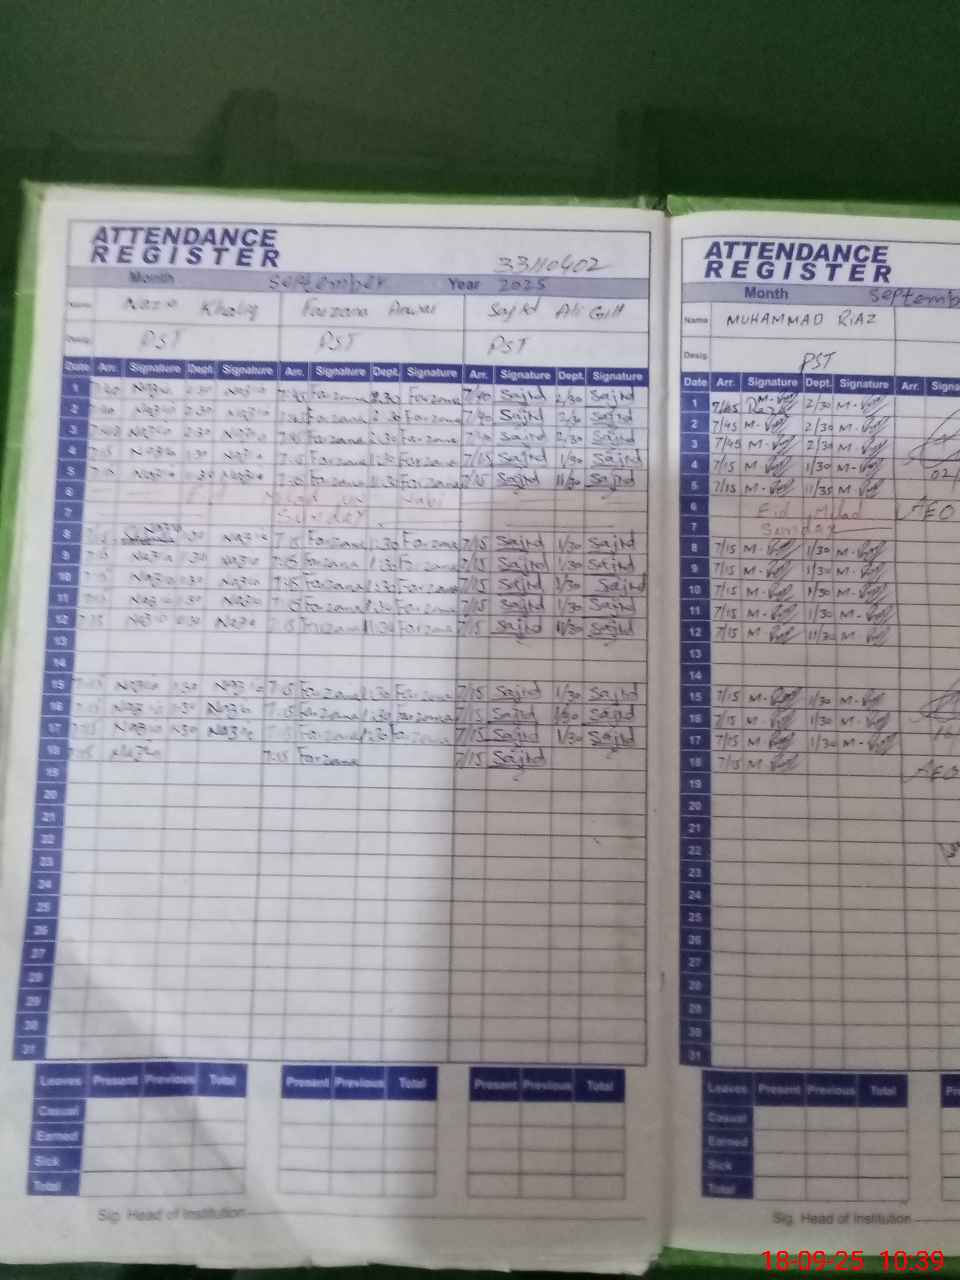 ATTENDANCE
REGISTER
33110402
Month September Year 2025
Name Nazia Khaliq Farzana Anwar Sajid Ali Gill
Desig. PST PST PST
Date Arr. Signature Dept. Signature Arr. Signature Dept. Signature Arr. Signature Dept. Signature
1 7:40 Nazia 2:30 Nazia 7:40 Farzana 2:30 Farzana 7/40 Sajid 2/30 Sajid
2 7:40 Nazia 2:30 Nazia Farzana 2:30 Farzana 7/40 Sajid 2/30 Sajid
3 Nazia 2:30 Nazia Farzana 2:30 Farzana 7/40 Sajid 2/30 Sajid
4 7:15 Nazia 1:30 Nazia 7:15 Farzana 1:30 Farzana 7/15 Sajid 1/30 Sajid
5 7:15 Nazia Nazia Farzana 11:30 Farzana 7/15 Sajid 11/30 Sajid
6 Milad un Nabi
7 Sunday
8 7:15 Nazia 1:30 Nazia 7:15 Farzana 1:30 Farzana 7/15 Sajid 1/30 Sajid
9 7:15 Nazia 1:30 Nazia 7:15 Farzana 1:30 Farzana 7/15 Sajid 1/30 Sajid
10 7:15 Nazia 1:30 Nazia 7:15 Farzana 1:30 Farzana 7/15 Sajid 1/30 Sajid
11 7:15 Nazia 1:30 Nazia 7:15 Farzana 1:30 Farzana 7/15 Sajid 1/30 Sajid
12 7:15 Nazia 11:30 Nazia 7:15 Farzana 11:30 Farzana 7/15 Sajid 11/30 Sajid
13
14
15 7:15 Nazia 1:30 Nazia 7:15 Farzana 1:30 Farzana 7/15 Sajid 1/30 Sajid
16 7:15 Nazia 1:30 Nazia 7:15 Farzana 1:30 Farzana 7/15 Sajid 1/30 Sajid
17 7:15 Nazia 1:30 Nazia 7:15 Farzana 1:30 Farzana 7/15 Sajid 1/30 Sajid
18 7:15 Nazia 7:15 Farzana 7/15 Sajid
19
20
21
22
23
24
25
26
27
28
29
30
31
Leaves Present Previous Total Present Previous Total Present Previous Total
Casual
Earned
Sick
Total
Sig. Head of Institution
ATTENDANCE
REGISTER
Month
Name MUHAMMAD RIAZ
Desig. PST
Date Arr. Signature Dept. Signature Arr.
1 7/45 M- Riaz 2/30 M-
2 7/45 M- 2/30 M-
3 7/45 M- 2/30 M-
4 7/15 M 1/30 M-
5 7/15 M- 11/35 M-
6 Eid Milad AEO
7 Sunday
8 7/15 M- 1/30 M-
9 7/15 M- 1/30 M-
10 7/15 M- 1/30 M-
11 7/15 M- 1/30 M-
12 7/15 M 11/30 M-
13
14
15 7/15 M- 1/30 M-
16 7/15 M- 1/30 M-
17 7/15 M- 1/30 M-
18 7/15 M- AEO
19
20
21
22
23
24
25
26
27
28
29
30
31
Leaves Present Previous Total
Casual
Earned
Sick
Total
Sig. Head of Institution
18-09-25 10:39